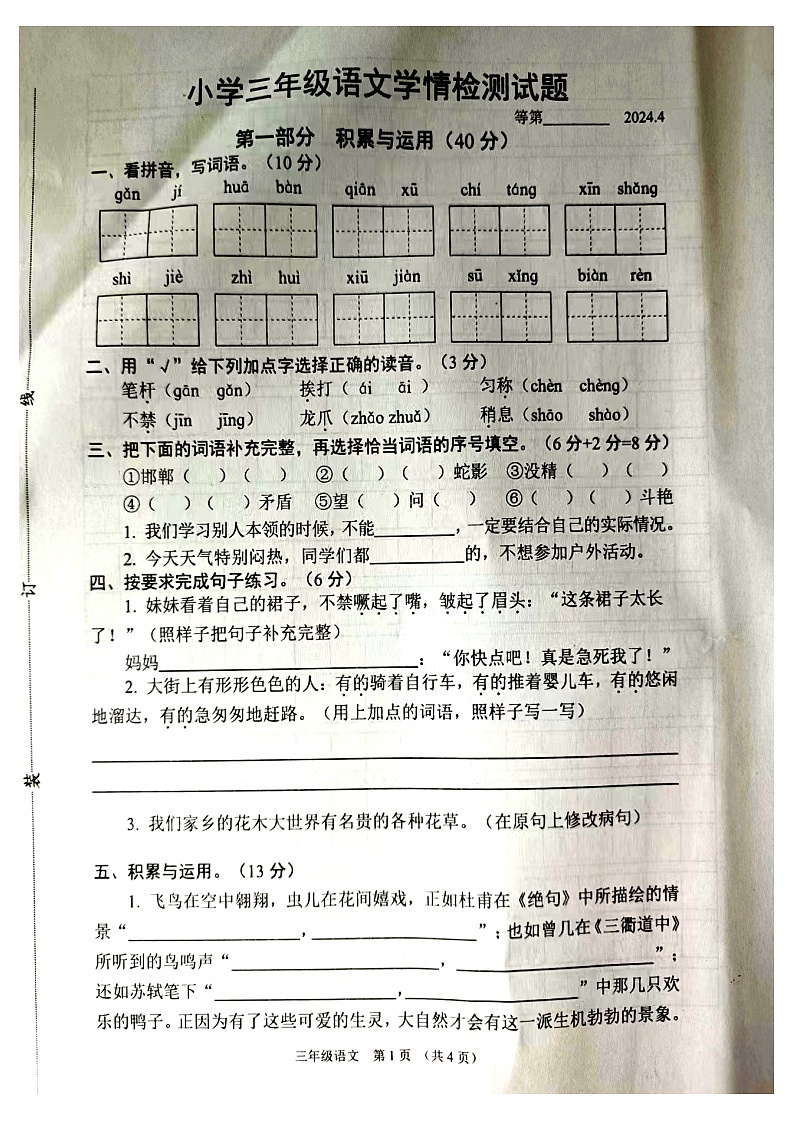 小学三年级语文学情检测试题
等第________ 2024.4
第一部分 积累与运用（40分）
一、看拼音，写词语。（10分）
gǎn jí huā bàn qiān xū chí táng xīn shǎng
shì jiè zhì huì xiū jiàn sū xǐng biàn rèn
二、用“√”给下列加点字选择正确的读音。（3分）
笔杆（gān gǎn） 挨打（ ái āi ） 匀称（chèn chèng）
不禁（jīn jīng） 龙爪（zhǎo zhuǎ） 稍息（shāo shào）
三、把下面的词语补充完整，再选择恰当词语的序号填空。（6分+2分=8分）
①邯郸（ ）（ ） ②（ ）（ ）蛇影 ③没精（ ）（ ）
④（ ）（ ）矛盾 ⑤望（ ）问（ ） ⑥（ ）（ ）斗艳
1. 我们学习别人本领的时候，不能_________，一定要结合自己的实际情况。
2. 今天天气特别闷热，同学们都__________的，不想参加户外活动。
四、按要求完成句子练习。（6分）
1. 妹妹看着自己的裙子，不禁噘起了嘴，皱起了眉头：“这条裙子太长
了！”（照样子把句子补充完整）
妈妈____________________________：“你快点吧！真是急死我了！”
2. 大街上有形形色色的人：有的骑着自行车，有的推着婴儿车，有的悠闲
地溜达，有的急匆匆地赶路。（用上加点的词语，照样子写一写）
3. 我们家乡的花木大世界有名贵的各种花草。（在原句上修改病句）
五、积累与运用。（13分）
1. 飞鸟在空中翱翔，虫儿在花间嬉戏，正如杜甫在《绝句》中所描绘的情
景“__________________，__________________”；也如曾几在《三衢道中》
所听到的鸟鸣声“______________________，____________________”；
还如苏轼笔下“___________________，__________________”中那几只欢
乐的鸭子。正因为有了这些可爱的生灵，大自然才会有这一派生机勃勃的景象。
三年级语文 第1页 （共4页）
线
订
装